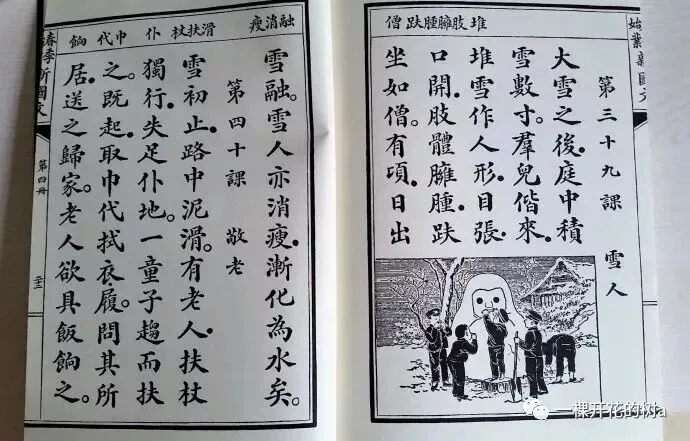 始業新國文
堆肢臃腫趺僧
第三十九課 雪人
大雪之後。庭中積
雪數寸。羣兒偕來。
堆雪作人形。目張
口開。肢體臃腫。趺
坐如僧。有頃。日出
融消瘦 滑扶杖 仆 巾代 餉
雪融。雪人亦消瘦。漸化為水矣。
第四十課 敬老
雪初止。路中泥滑。有老人。扶杖
獨行。失足仆地。一童子趨而扶
之。既起。取巾代拭衣履。問其所
居。送之歸家。老人欲具飯餉之。
春季新國文
第四冊
一棵开花的树a